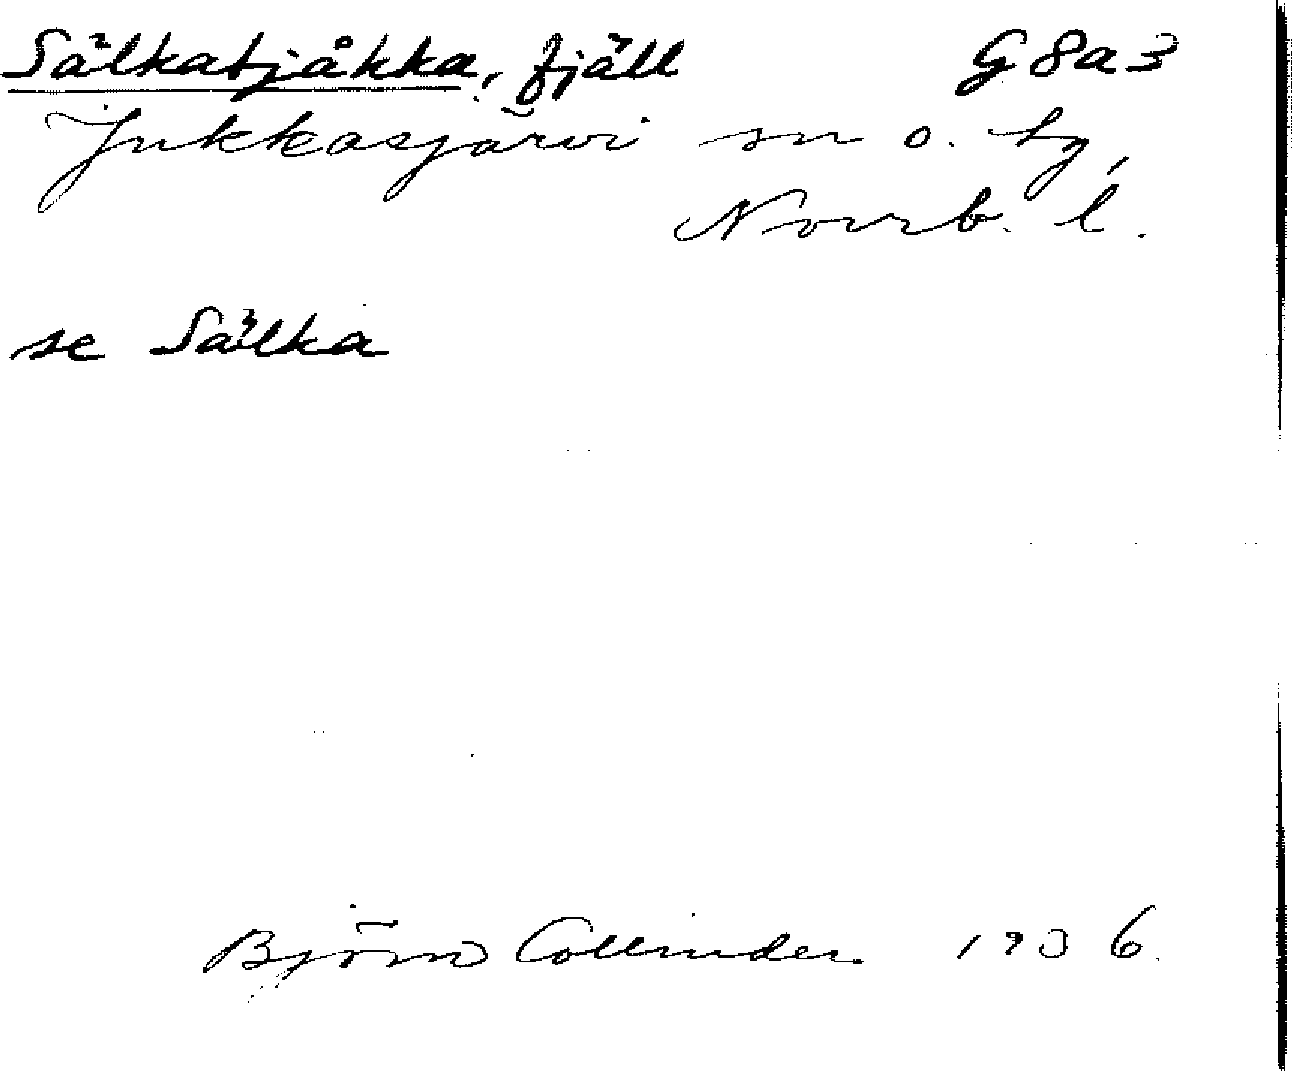 Sälkatjåkka, fjäll G8a3
Jukkasjärvi sn o. tg,
Norrb. l.
se Sälka
Björn Collinder. 1936.